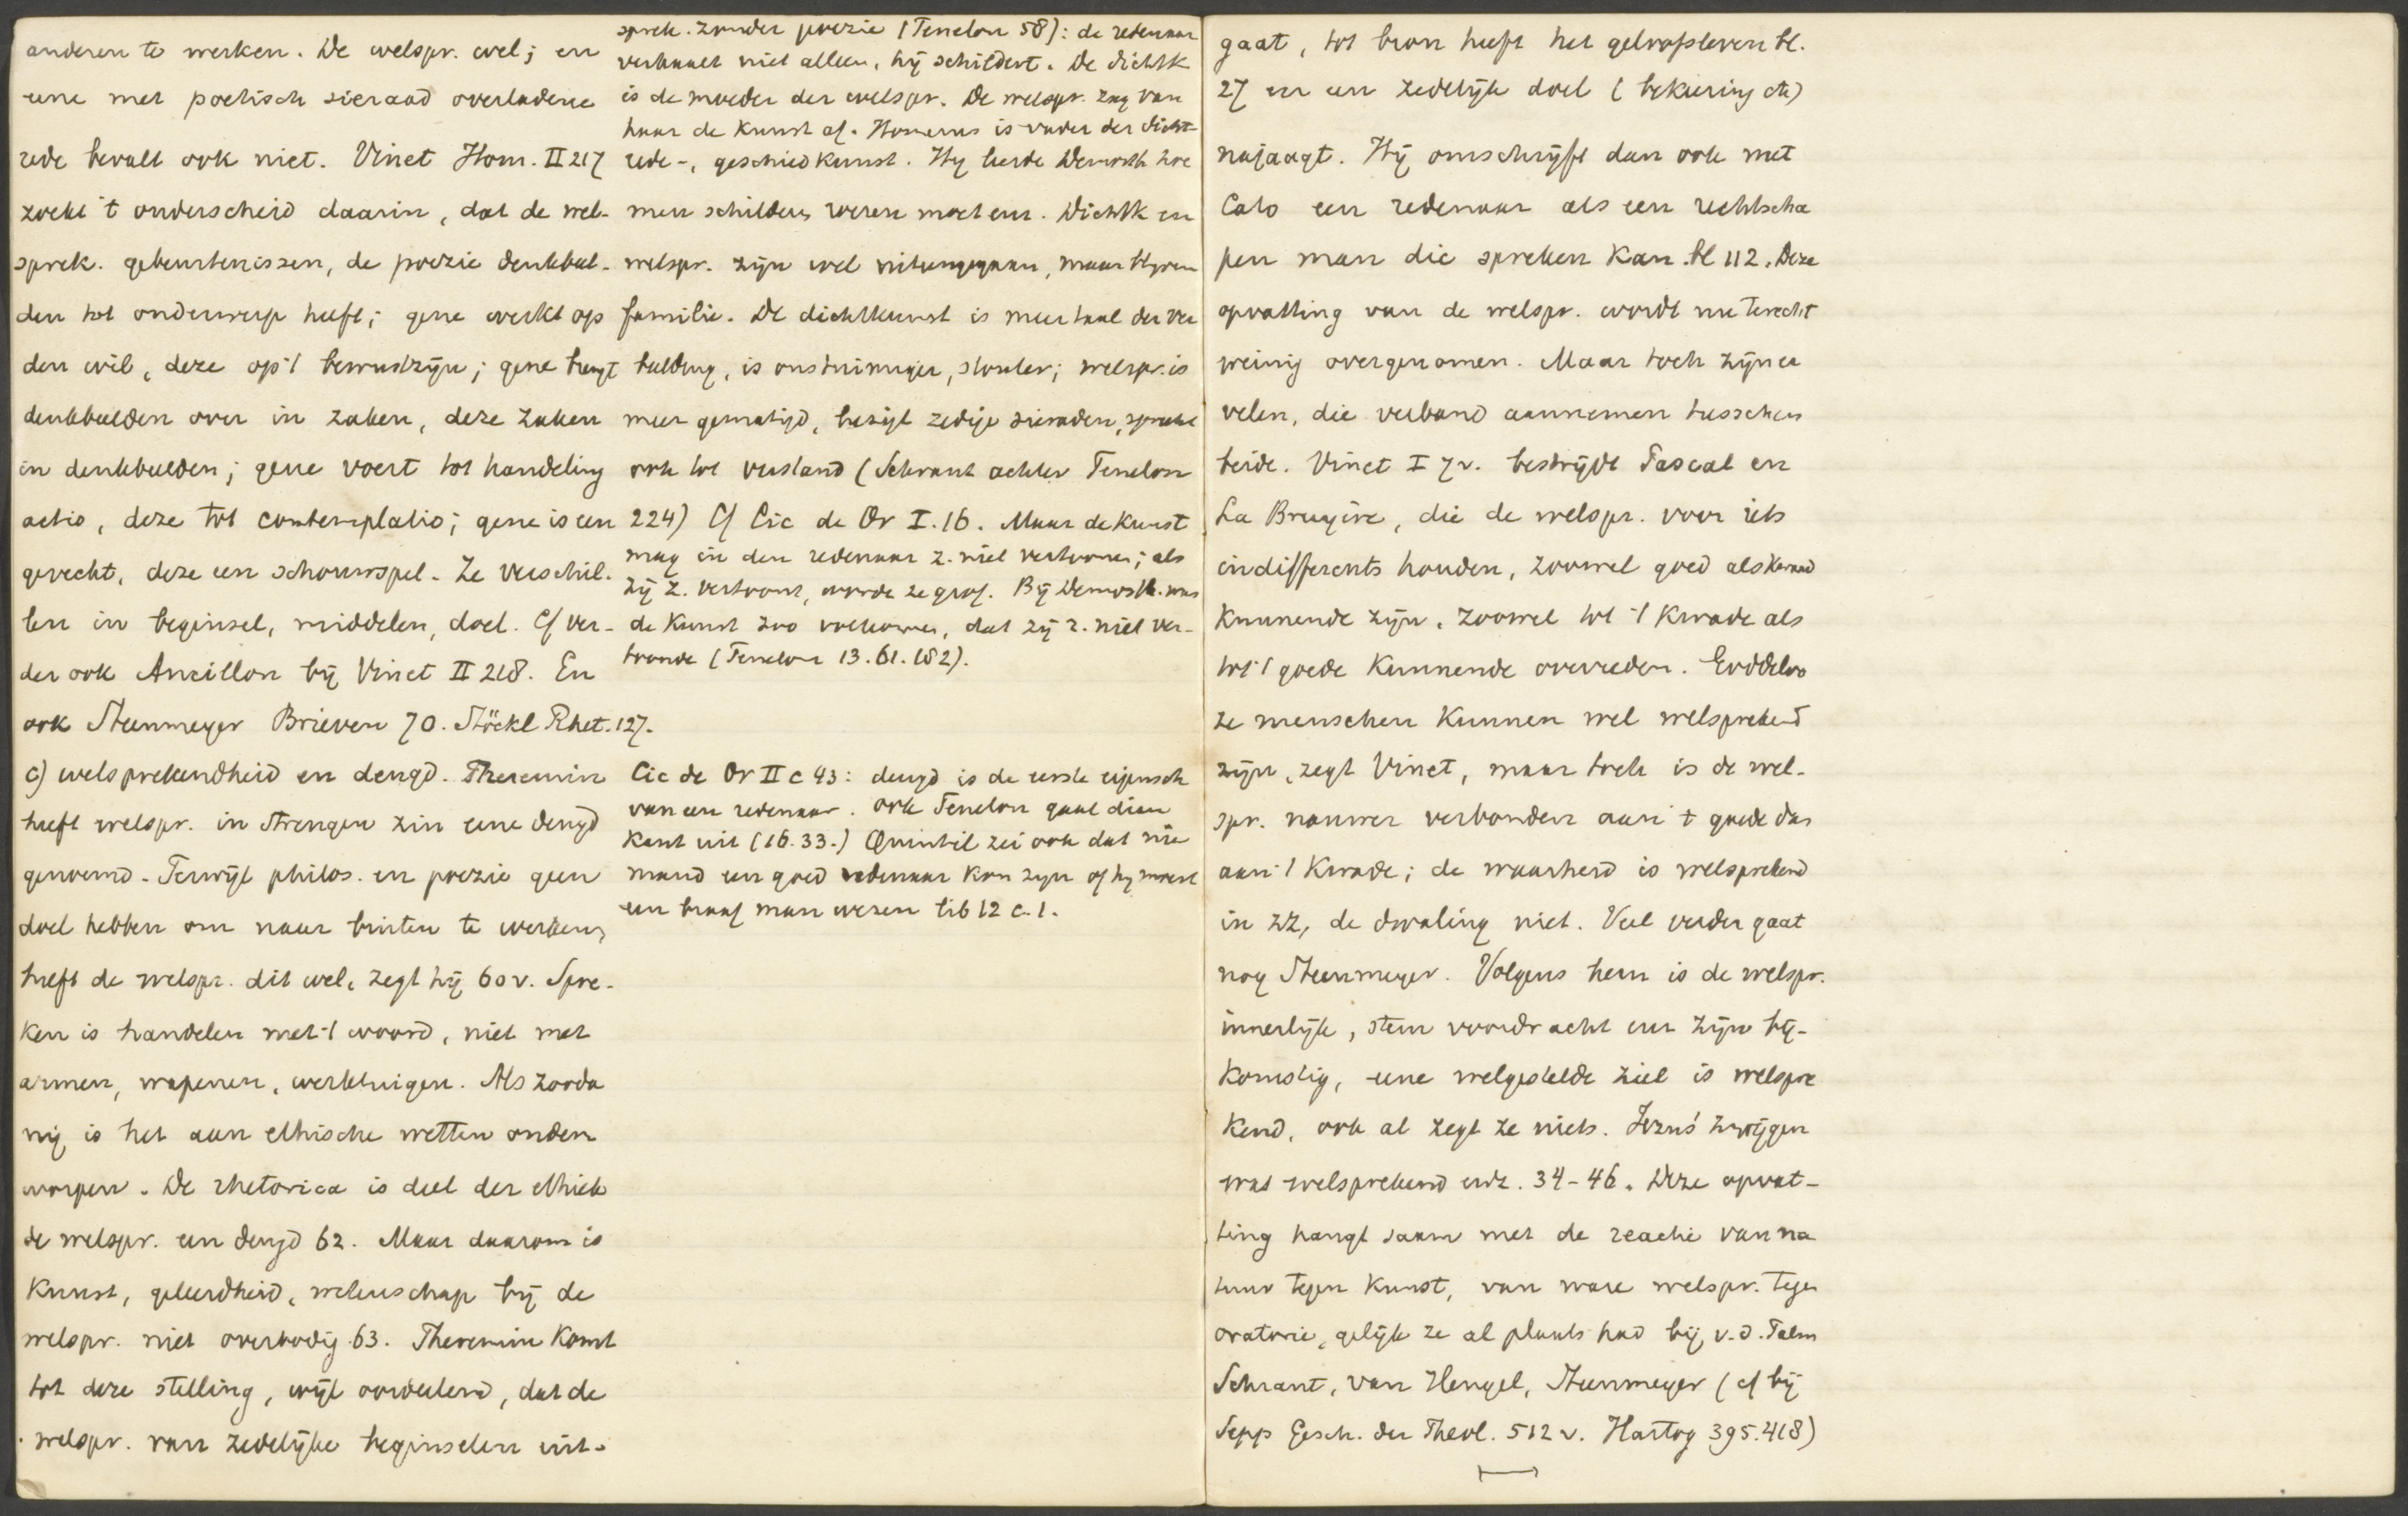 anderen te werken. De welspr. wel; en
eene met poetisch sieraad overladene
rede bevalt ook niet. Vinet Hom. II 217
zoekt 't onderscheid daarin, dat de wel-
sprek. gebeurtenissen, de poezie denkbeel-
den tot onderwerp heeft; gene werkt op
den wil, deze op 't bewustzijn; gene brengt
denkbeelden over in zaken, deze zaken
in denkbeelden; gene voert tot handeling
actio, deze tot contemplatio; gene is een
gevecht, deze een schouwspel. Ze verschil-
len in beginsel, middelen, doel. Cf ver-
der ook Ancillon bij Vinet II 218. En
ook Steenmeyer Brieven 70. Stöckl Rhet. 127.
c) welsprekendheid en deugd. Theremin
heeft welspr. in strengen zin eene deugd
genoemd. Terwijl philos. en poezie geen
doel hebben om naar buiten te werken,
heeft de welspr. dit wel, zegt hij 60 v. Spre-
ken is handelen met 't woord, niet met
armen, wapenen, werktuigen. Als zooda
nig is het aan ethische wetten onder
worpen. De rhetorica is deel der ethiek
de welspr. een deugd 62. Maar daarom is
kunst, geleerdheid, wetenschap bij de
welspr. niet overbodig 63. Theremin komt
tot deze stelling, wijl oordeelend, dat de
welspr. van zedelijke beginselen uit-
sprek. zonder poezie (Fenelon 58): de redenaar
verhaalt niet alleen, hij schildert. De dichtk
is de moeder der welspr. De welspr. zag van
haar de kunst af. Homerus is vader der dicht-
rede-, geschiedkunst. Hij leerde Demosth hoe
men schilders wezen moet enz. Dichtk en
welspr. zijn wel uiteengegaan, maar blyven
familie. De dichtkunst is meer taal der ver
beelding, is onstuimiger, stouter; welspr. is
meer gematigd, bezigt zedige sieraden, spreekt
ook tot verstand (Schrant achter Fenelon
224) Cf Cic de Or I. 16. Maar de kunst
mag in den redenaar z. niet vertoonen; als
zij z. vertoont, wordt ze grof. Bij Demosth. was
de kunst zoo volkomen, dat zij z. niet ver-
toonde (Fenelon 13. 61. 182).
Cic de Or II c 43: deugd is de eerste eigensch
van een redenaar. Ook Fenelon gaat dien
kant uit (16. 33.) Quintil zei ook dat nie
mand een goed redenaar kon zyn of hy moest
een braaf man wezen lib 12 c. 1.
gaat, tot bron heeft het geloofsleven bl.
27 en een zedelijk doel (bekeering etc)
najaagt. Hij omschrijft dan ook met
Cato een redenaar als een rechtscha
pen man die spreken kan bl 112. Deze
opvatting van de welspr. wordt nu terecht
weinig overgenomen. Maar toch zijn er
velen, die verband aannemen tusschen
beide. Vinet I 7 v. bestrijdt Pascal en
La Bruyère, die de welspr. voor iets
indifferents houden, zoowel goed als kwaad
kunnende zijn, zoowel tot 't kwade als
tot 't goede kunnende overreden. Goddeloo
ze menschen kunnen wel welsprekend
zijn, zegt Vinet, maar toch is de wel-
spr. nauwer verbonden aan 't goede dan
aan 't kwade; de waarheid is welsprekend
in zz, de dwaling niet. Veel verder gaat
nog Steenmeyer. Volgens hem is de welspr.
innerlijk, stem voordracht enz zijn bij-
komstig, eene welgestelde ziel is welspre
kend, ook al zegt ze niets. Jezus' zwijgen
was welsprekend enz. 34-46. Deze opvat-
ting hangt saam met de reactie van na
tuur tegen kunst, van ware welspr. tegen
oratorie, gelijk ze al plaats had bij v. d. Palm
Schrant, van Hengel, Steenmeyer (cf bij
Sepp Gesch. der Theol. 512 v. Hartog 395. 418)